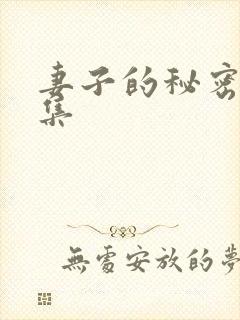 妻子的秘密
集
無處安放的夢